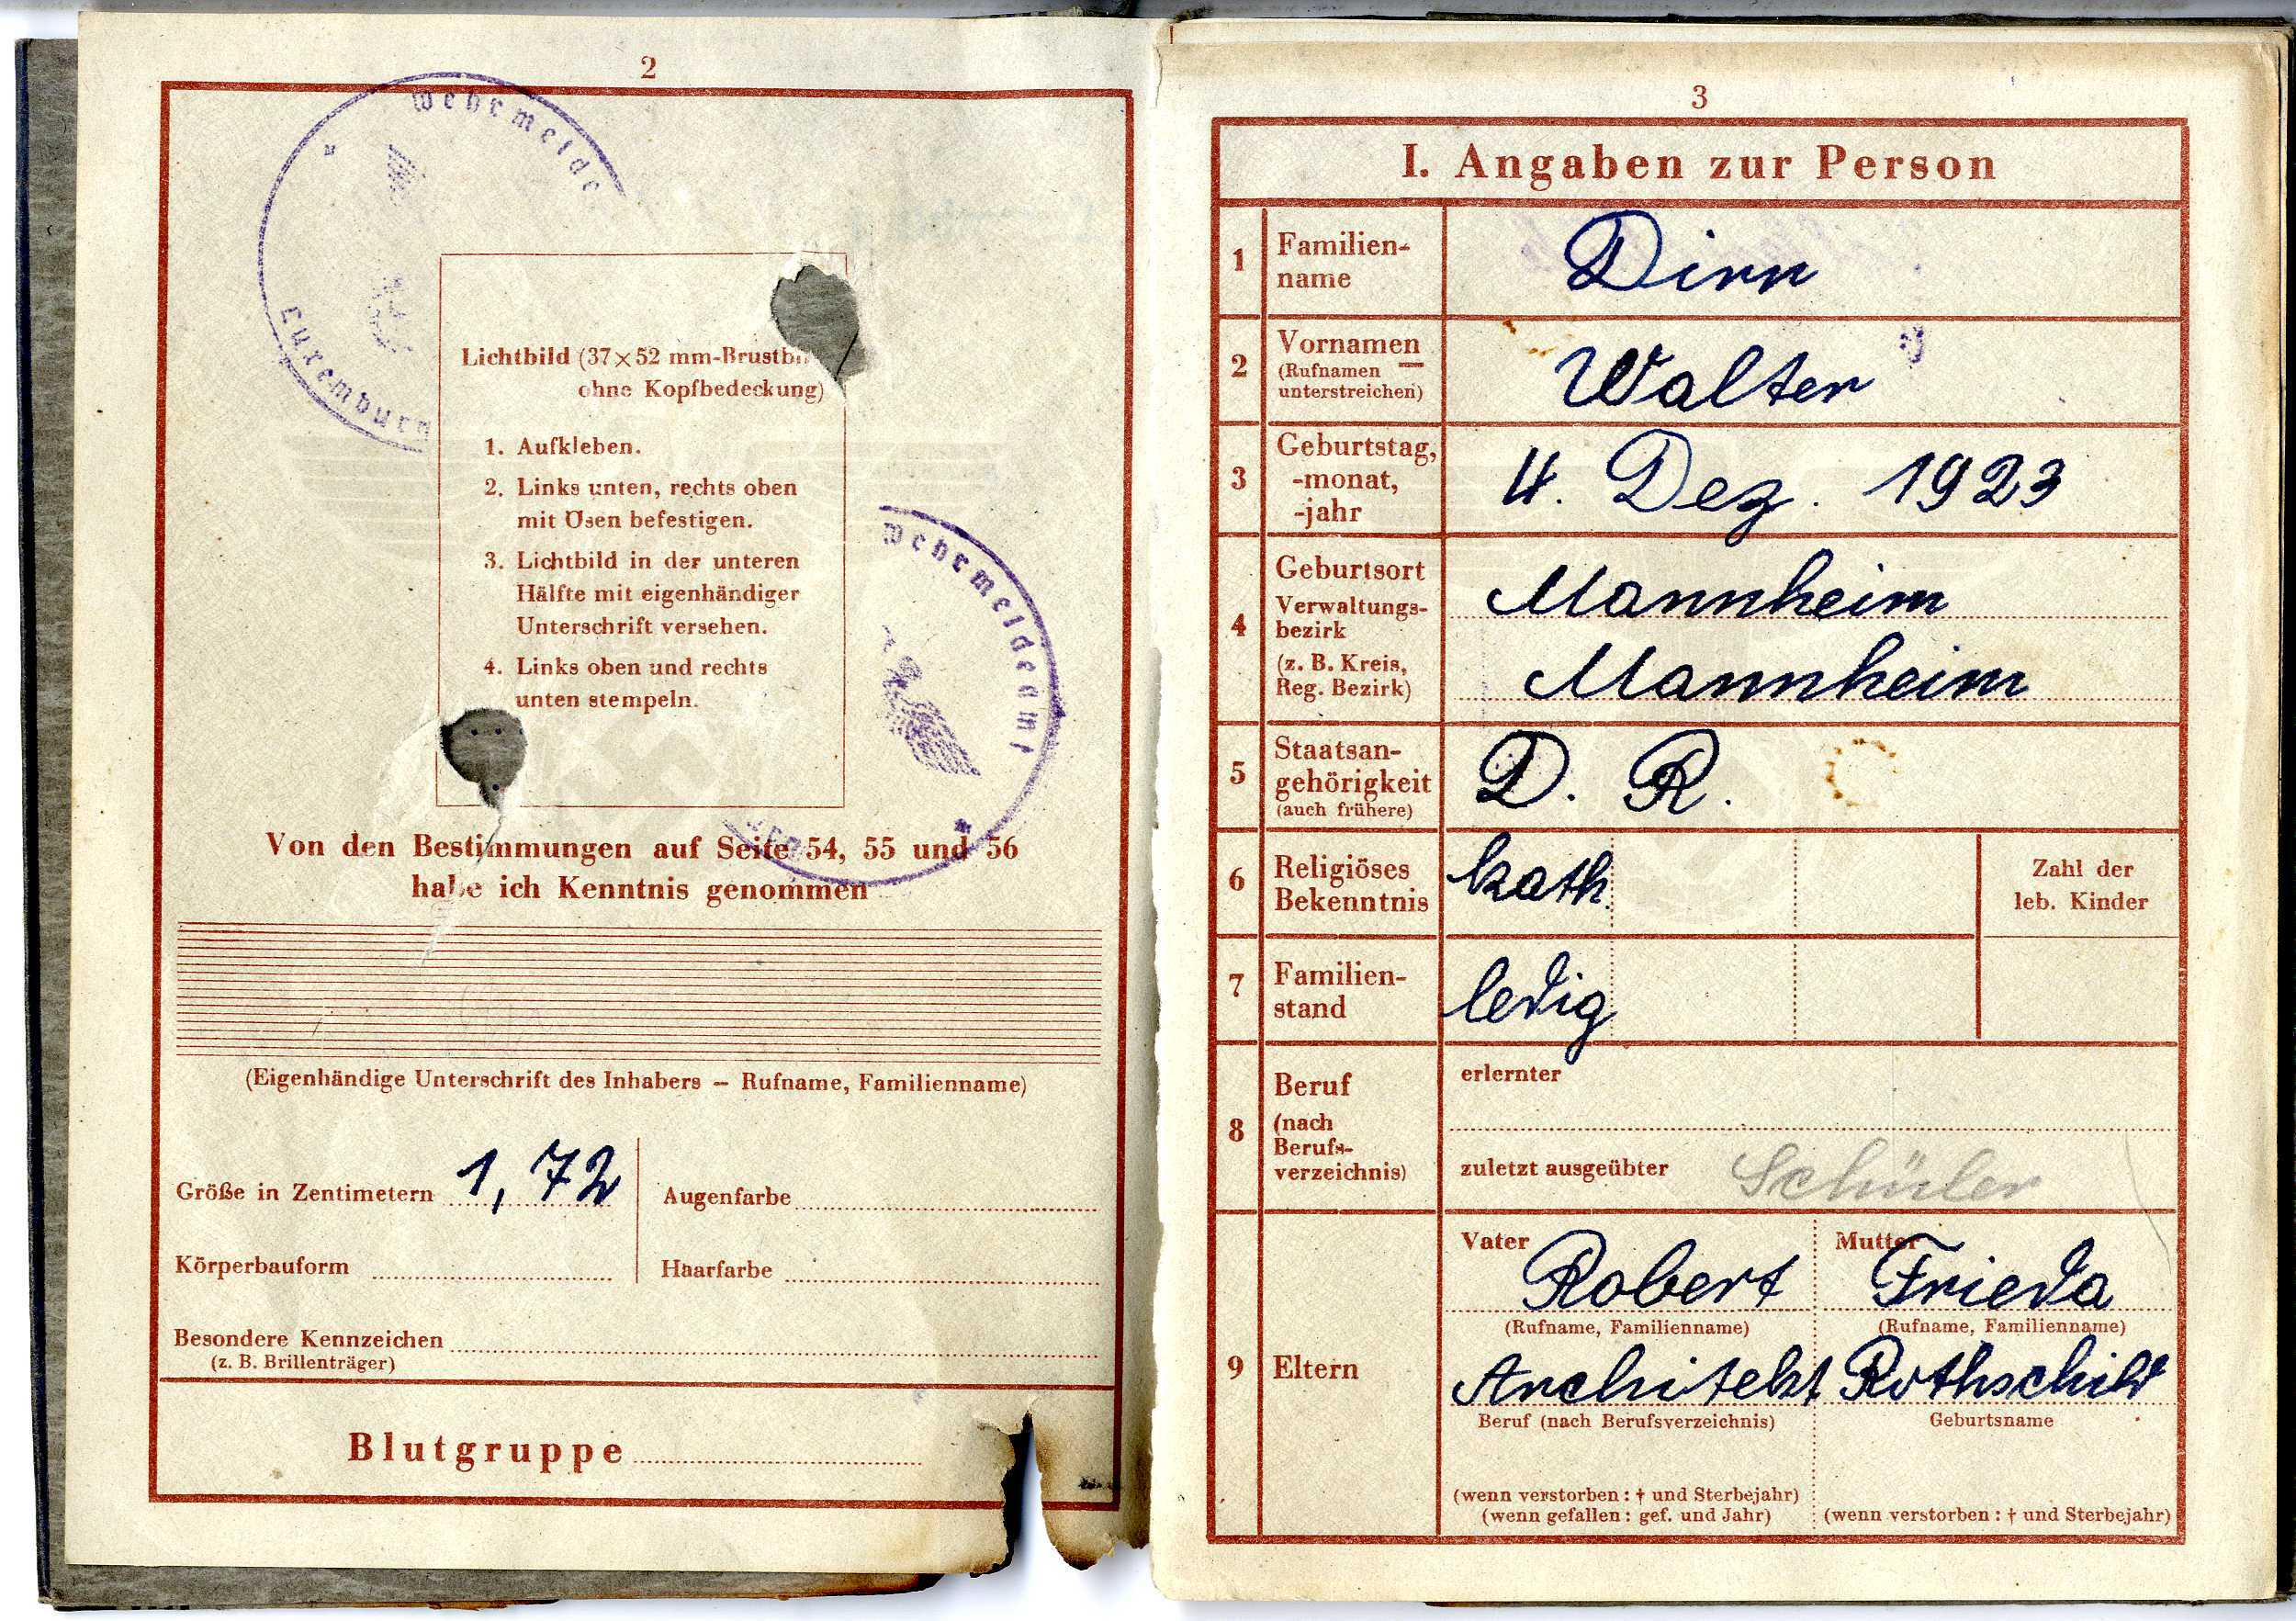 2
Wehrmelde
Luxemburg
Lichtbild (37×52 mm-Brustbi
ohne Kopfbedeckung)
1. Aufkleben.
2. Links unten, rechts oben
mit Ösen befestigen.
3. Lichtbild in der unteren
Hälfte mit eigenhändiger
Unterschrift versehen.
4. Links oben und rechts
unten stempeln.
Wehrmeldeamt
Von den Bestimmungen auf Seite 54, 55 und 56
habe ich Kenntnis genommen
(Eigenhändige Unterschrift des Inhabers – Rufname, Familienname)
Größe in Zentimetern 1,72 Augenfarbe
Körperbauform Haarfarbe
Besondere Kennzeichen
(z. B. Brillenträger)
Blutgruppe
3
I. Angaben zur Person
1 Familien-
name
Dirr
2 Vornamen
(Rufnamen
unterstreichen)
Walter
3 Geburtstag,
-monat,
-jahr
4. Dez. 1923
4 Geburtsort
Mannheim
Verwaltungs-
bezirk
(z. B. Kreis,
Reg. Bezirk)
Mannheim
5 Staatsan-
gehörigkeit
(auch frühere)
D. R.
6 Religiöses
Bekenntnis
kath.
Zahl der
leb. Kinder
7 Familien-
stand
ledig
8 Beruf
(nach
Berufs-
verzeichnis)
erlernter
zuletzt ausgeübter Schüler
9 Eltern
Vater Mutter
Robert Frieda
(Rufname, Familienname) (Rufname, Familienname)
Architekt Rothschild
Beruf (nach Berufsverzeichnis) Geburtsname
(wenn verstorben: † und Sterbejahr)
(wenn gefallen: gef. und Jahr) (wenn verstorben: † und Sterbejahr)